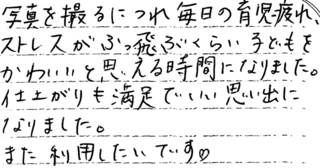 写真を撮るにつれ毎日の育児疲れ、
ストレスがぶっ飛ぶくらい子どもを
かわいいと思える時間になりました。
仕上がりも満足でいい思い出に
なりました。
また利用したいです♡